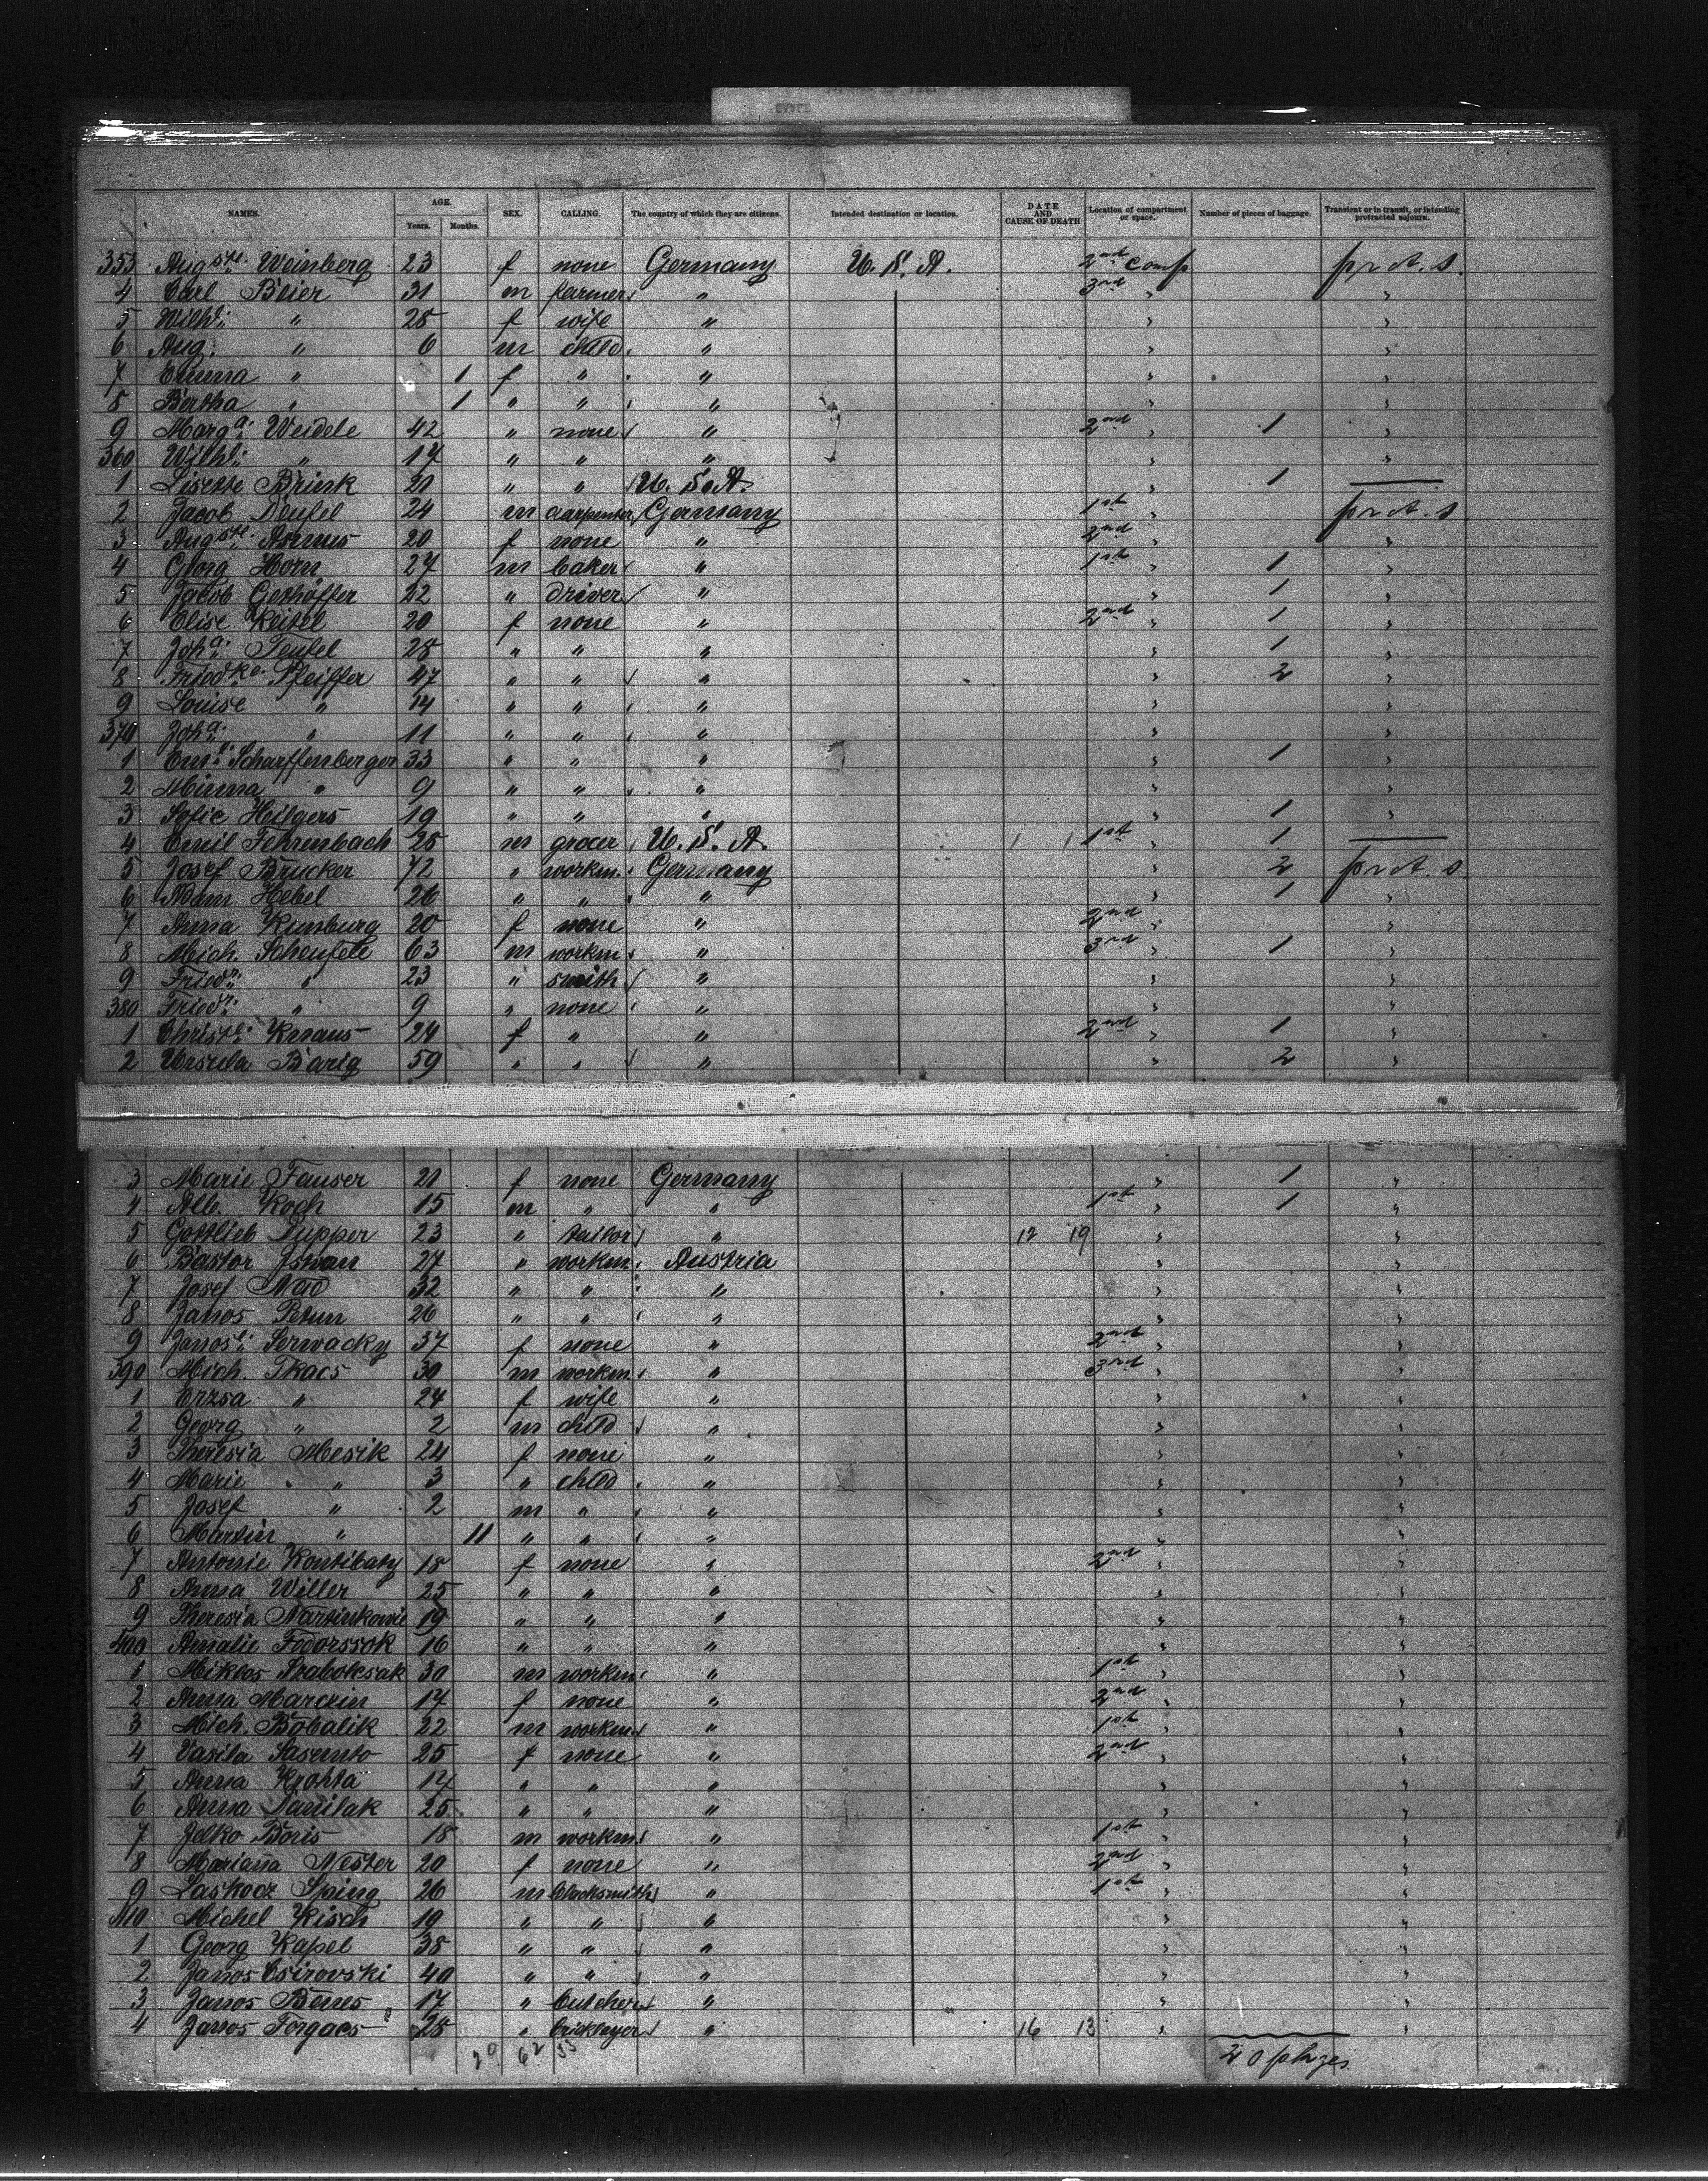 NAMES. AGE. Years. Months. SEX. CALLING. The country of which they are citizens. Intended destination or location. DATE AND CAUSE OF DEATH Location of compartment or space. Number of pieces of baggage. Transient or in transit, or intending protracted sojourn.
353 Augste. Weinberg 23 f none Germany U. S. A. 2nd comp pr ct. s.
4 Carl Beier 31 m farmer " 3rd " "
5 Wilhe. " 28 f wife " " "
6 Aug. " 6 m child " " "
7 Emma " 1 f " " " "
8 Bertha " 1 " " " " "
9 Marga. Weidele 42 " none " 2nd " 1 "
360 Wilhe. " 17 " " " " "
1 Lisette Brink 21 " " U. S. A. " 1 —
2 Jacob Deufel 24 m carpenter Germany 1st " pr ct. s
3 Augste. Asmus 20 f none " 2nd " "
4 Georg Horn 27 m baker " 1st " 1 "
5 Jacob Gethöffer 22 " driver " " 1 "
6 Elise Keitel 20 f none " 2nd " 1 "
7 Joha. Teufel 28 " " " " 1 "
8 Friedke. Pfeiffer 47 " " " " 2 "
9 Louise " 14 " " " " "
370 Joha. " 11 " " " " "
1 Scharffenberger 33 " " " " 1 "
2 Minna " 9 " " " " "
3 Sofie Hilgers 19 " " " " 1 "
4 Emil Fehrenbach 25 m grocer U. S. A. 1st " 1 —
5 Josef Brucker 72 " workm. Germany " 2 pr ct. s
6 Adam Hebel 26 " " " " 1 "
7 Anna Kunburg 20 f none " 2nd " "
8 Mich. Scheufele 63 m workm " 3rd " 1 "
9 Friedr. " 23 " smith " " "
380 Friedr. " 9 " none " " "
1 Christe. Knaus 24 f " " 2nd " 1 "
2 Ursula Barig 59 " " " " 2 "
3 Marie Fauser 21 f none Germany " 1 "
4 Alb. Koch 15 m " " 1st " 1 "
5 Gottlieb Dupper 23 " tailor " 12 19 " "
6 Bastor Istvan 27 " workm. Austria " "
7 Josef Nad 32 " " " " "
8 Janos Petun 26 " " " " "
9 Janose. Serwacky 37 f none " 2nd " "
390 Mich. Tkacs 30 m workm. " 3rd " "
1 Erzsa " 24 f wife " " "
2 Georg " 2 m child " " "
3 Theresia Mesik 24 f none " " "
4 Marie " 3 " child " " "
5 Josef " 2 m " " " "
6 Martin " 11 " " " " "
7 Antonie Kontibaty 18 f none " 2nd " "
8 Anna Willer 25 " " " " "
9 Theresia 19 " " " " "
400 Amalie Fedorssok 16 " " " " "
1 Miklos Szabolcsak 30 m workm. " 1st " "
2 Anna Marczin 17 f none " 2nd " "
3 Mich. Bobalik 22 m workm. " 1st " "
4 Vasila 25 f none " 2nd " "
5 Anna Krohta 17 " " " " "
6 Anna Danilak 25 " " " " "
7 Jelko Boris 18 m workm " 1st " "
8 Mariana Nester 20 f none " 2nd " "
9 Laskocz Sping 26 m blacksmith " 1st " "
410 Michel Kisch 19 " " " " "
1 Georg Kapel 38 " " " " "
2 Janos Csirovski 40 " " " " "
3 Janos Benes 17 " butcher " " "
4 Janos Forgacs 28 " bricklayer " 16 13 " "
20 62 55 20 pkges